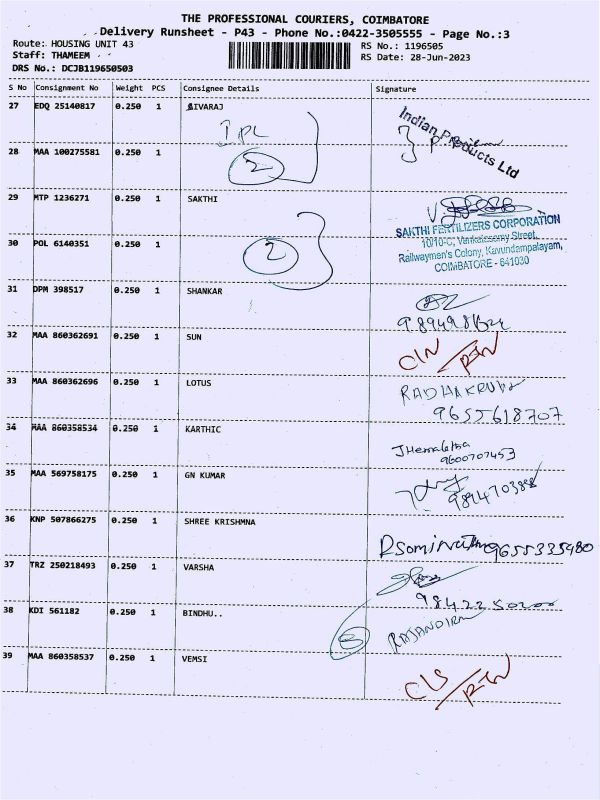 THE PROFESSIONAL COURIERS, COIMBATORE
Delivery Runsheet - P43 - Phone No.:0422-3505555 - Page No.:3
Route: HOUSING UNIT 43
RS No.: 1196505
Staff: THAMEEM
RS Date: 28-Jun-2023
DRS No.: DCJB119650503
S No Consignment No Weight PCS Consignee Details Signature
27 EDQ 25140817 0.250 1 SIVARAJ
IPL
Indian Products Ltd
28 MAA 100275581 0.250 1
2
29 MTP 1236271 0.250 1 SAKTHI
SAKTHI FERTILIZERS CORPORATION
10/10-C, Venkatasamy Street,
Railwaymen's Colony, Kavundampalayam,
COIMBATORE - 641030
30 POL 6140351 0.250 1
2
31 DPM 398517 0.250 1 SHANKAR
32 MAA 860362691 0.250 1 SUN
33 MAA 860362696 0.250 1 LOTUS
9655618707
34 MAA 860358534 0.250 1 KARTHIC
JHemalatha
9600707453
35 MAA 569758175 0.250 1 GN KUMAR
36 KNP 507866275 0.250 1 SHREE KRISHMNA
9655335480
37 TRZ 250218493 0.250 1 VARSHA
38 KDI 561182 0.250 1 BINDHU..
39 MAA 860358537 0.250 1 VEMSI